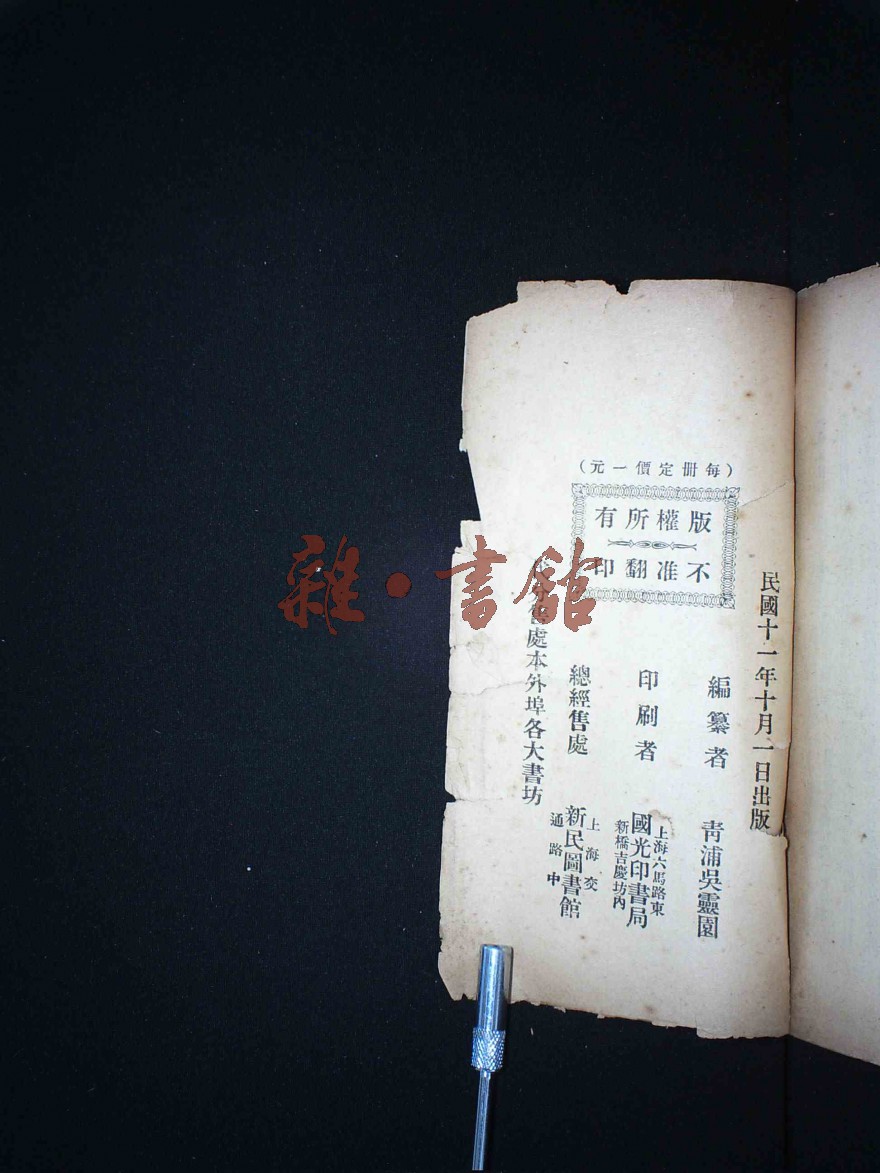 （每冊定價一元）
版權所有
不准翻印
民國十一年十月一日出版
編纂者　青浦吳靈園
印刷者　上海六馬路東新橋吉慶坊內　國光印書局
總經售處　上海交通路中　新民圖書館
分售處本外埠各大書坊
雜·書館